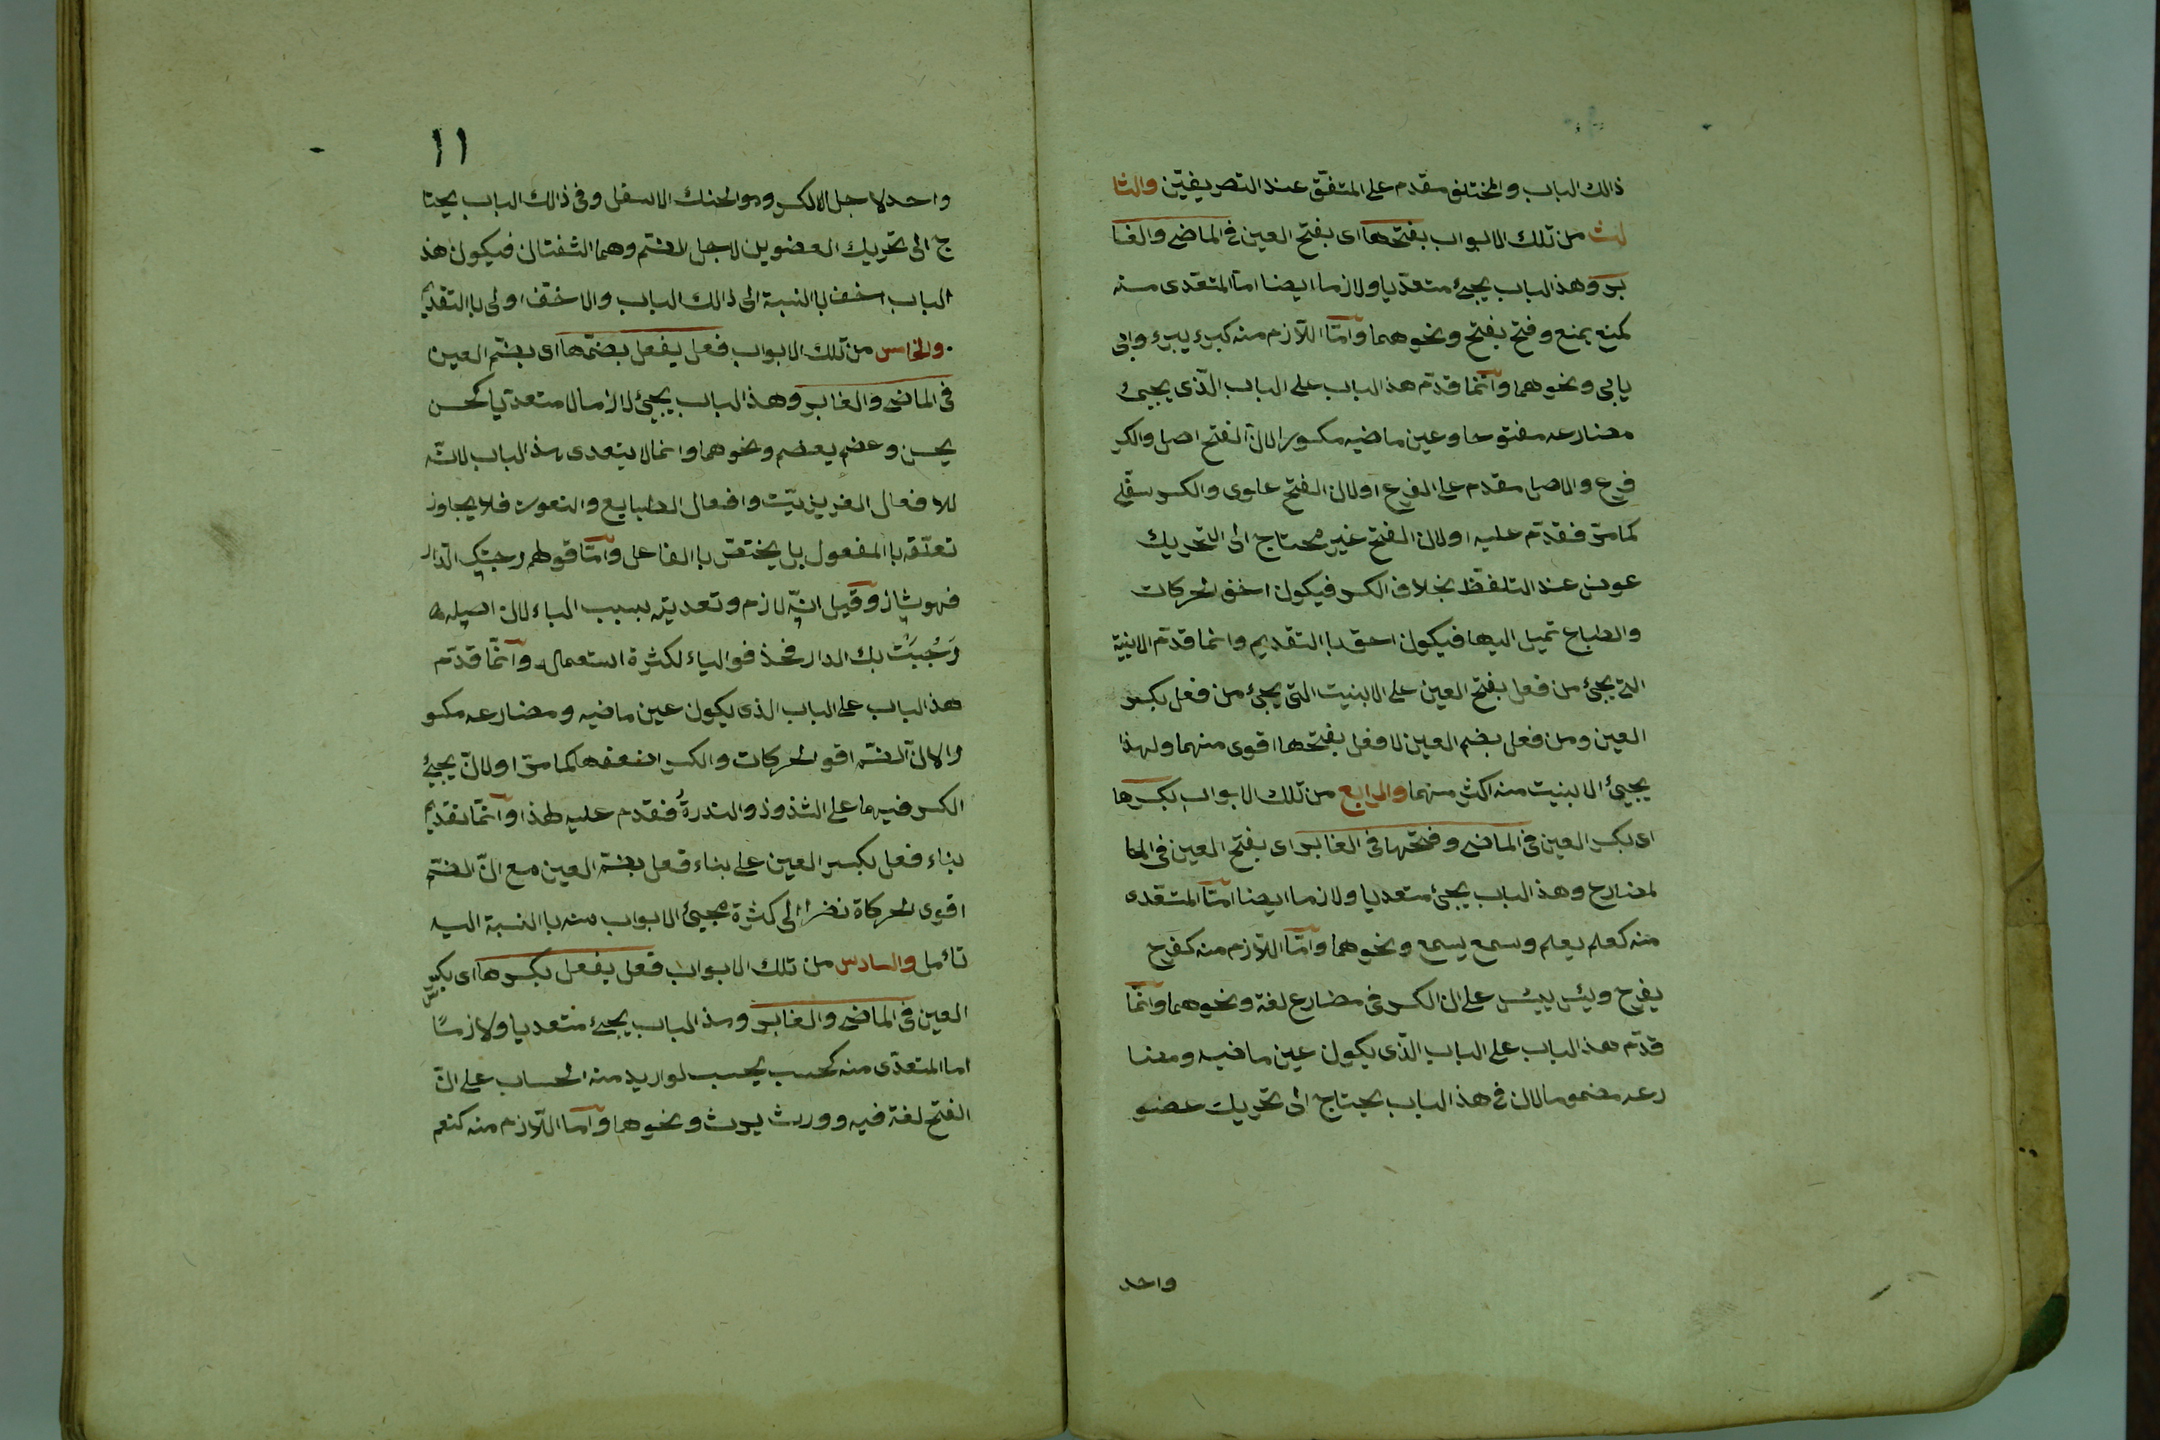 ذالك الباب والمختلف مقدم على المتفق عند التصريفيّن والثا
لث من تلك الابواب بفتحهما اى بفتح العين فى الماضى والغا
بر وهذ الباب يجيئ متعدّيا ولازما ايضا امّا المتعّدى منه
كمنع يمنع وفتح يفتح ونحوهما وامّا اللّازم منه كبرء يبرء وابى
يابى ونحوهما وانّما قدّم هذ الباب على الباب الّذى يجيئ
مضارعه مفتوحا وعين ماضيه مكسورا لانّ الفتح اصل والكسر
فرع والاصل مقدم على الفرع اولان الفتح علوى والكسر سفلى
كما مرّ فقدّم عليه اولان الفتح غير محتاج الى التحريك
عون عند التلفّظ بخلاف الكسر فيكون اخف الحركات
والطباع تميل اليها فيكون احق با التقديم وانما قدّم الابنية
التى يجيئ من فعل بفتح العين على الابنيت التى يجيئ من فعل بكسر
العين ومن فعل بضم العين لا وفعل بفتحها اقوى منهما ولهذا
يجيئ الابنيت منه اكثر منهما والرابع من تلك الابواب بكسرها
اى بكسر العين فى الماضى وفتحها فى الغابر اى بفتح العين فى الما
لمضارع وهذ الباب يجيئ متعديا ولازما ايضا امّا المتعّدى
منه كعلم يعلم وسمع يسمع ونحوهما وامّا اللّازم منه كفرح
يفرح ويئس ييئس على ان الكسر فى مضارع لغة ونحوهما وانّما
قدّم هذ الباب على الباب الّذى يكون عين ماضيه ومضا
رعه مضموما لان فى هذ الباب يحتاج الى تحريك عضو
واحد
١١
واحد لاجل الكسر وهو الحنك الاسفل وفى ذالك الباب يحتا
ج الى تحريك العضوين لاجل الضم وهما الشفتان فيكون هذ
الباب اخف با النسبة الى ذالك الباب والاخّف اولى با التقديم
والخامس من تلك الابواب فعل يفعل بضمّهما اى بضم العين
فى الماضى والغابر وهذ الباب يجيئ لازما لا متعدّيا كحسن
يحسن وعظم يعظم ونحوهما وانما لا يتعدى هذ الباب لانّه
للافعال الغريزيّت وافعال الطبايع والنعوت فلا يجاوز
تعلّقه با المفعول بل يختصّ با الفاعل وامّا قولهم رحبتك الدار
فهو شاز وقيل انّه لازم وتعديته بسبب الباء لان اصله
رَحُبَتْ بك الدار فحذفو الباء لكثرة استعمال وانّما قدّم
هذ الباب على الباب الذى يكون عين ماضيه ومضارعه مكسو
را لانّ الضمّ اقو الحركات والكسر اضعفها كما مرّ اولانّ يجيئ
الكسر فيهما على الشذوذ والندرة فقدم عليه لهذا وانّما تقديم
بناء فعل بكسر العين على بناء فعل بضم العين مع انّ الضمّ
اقوى الحركاة نضرا الى كثرة مجيئ الابواب منه با النسبة اليه
تأمل والسادس من تلك الابواب فعل يفعل بكسرهما اى بكسر
العين فى الماضى والغابر وهذ الباب يجيئ متعديا ولازمًا
اما المتعدّى منه كحسب يحسب لو اريد منه الحساب على انّ
الفتح لغة فيه وورث يرث ونحوهما وامّا اللّازم منه كنعم